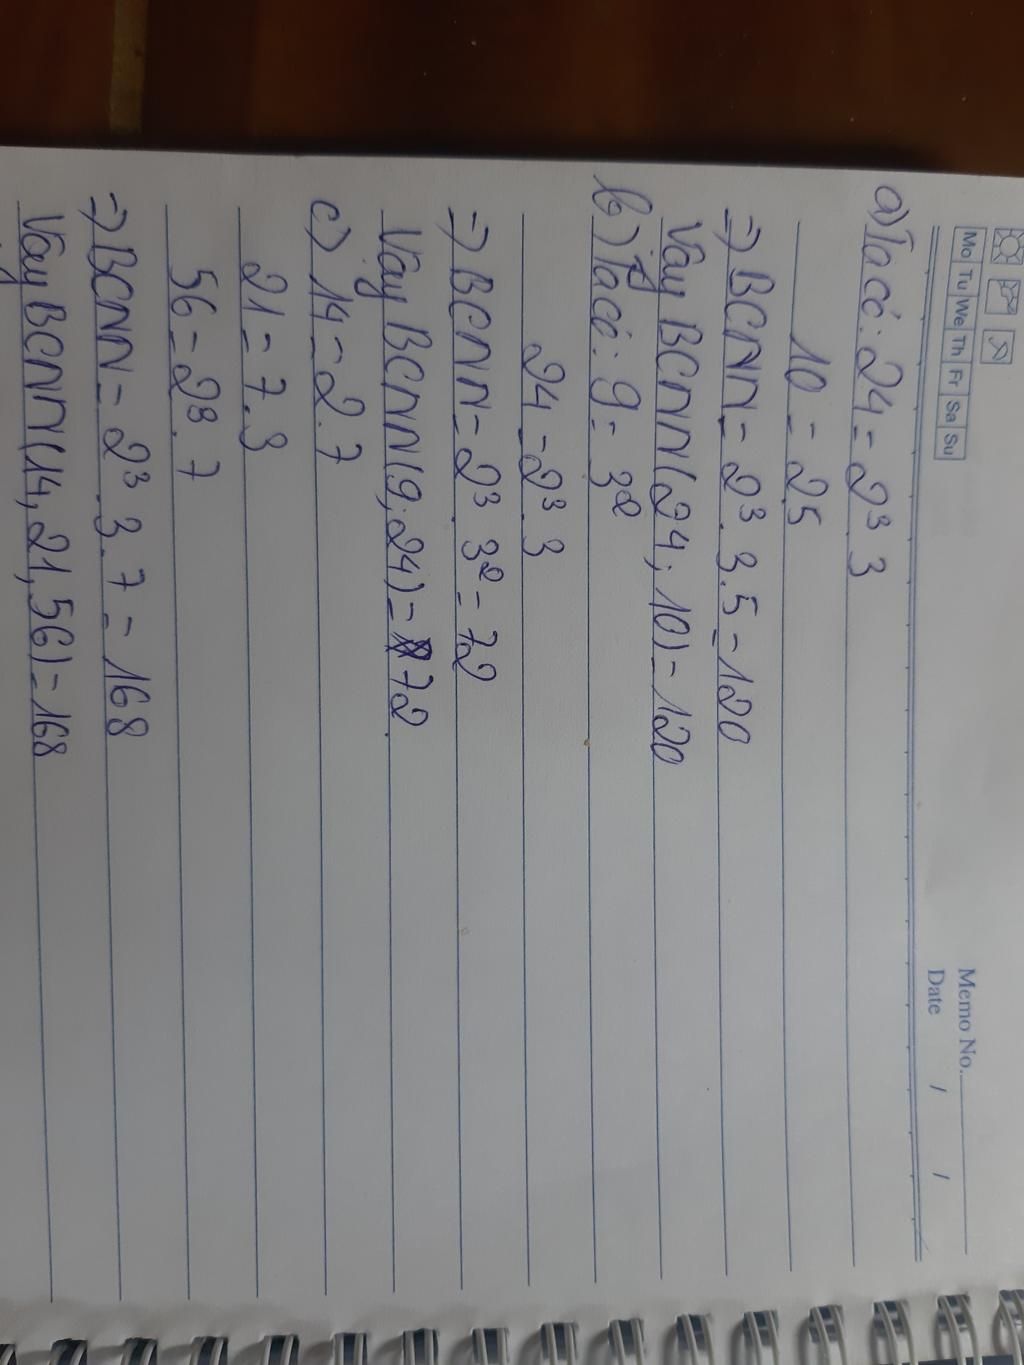 Memo No.
Mo Tu We Th Fr Sa Su
Date / /
a) Ta có: 24 = 2³.3
10 = 2.5
=> BCNN = 2³.3.5 = 120
Vậy BCNN(24; 10) = 120
b) Ta có: 9 = 3²
24 = 2³.3
=> BCNN = 2³.3² = 72
Vậy BCNN(9; 24) = 72
c) 14 = 2.7
21 = 7.3
56 = 2³.7
=> BCNN = 2³.3.7 = 168
Vậy BCNN(14, 21, 56) = 168